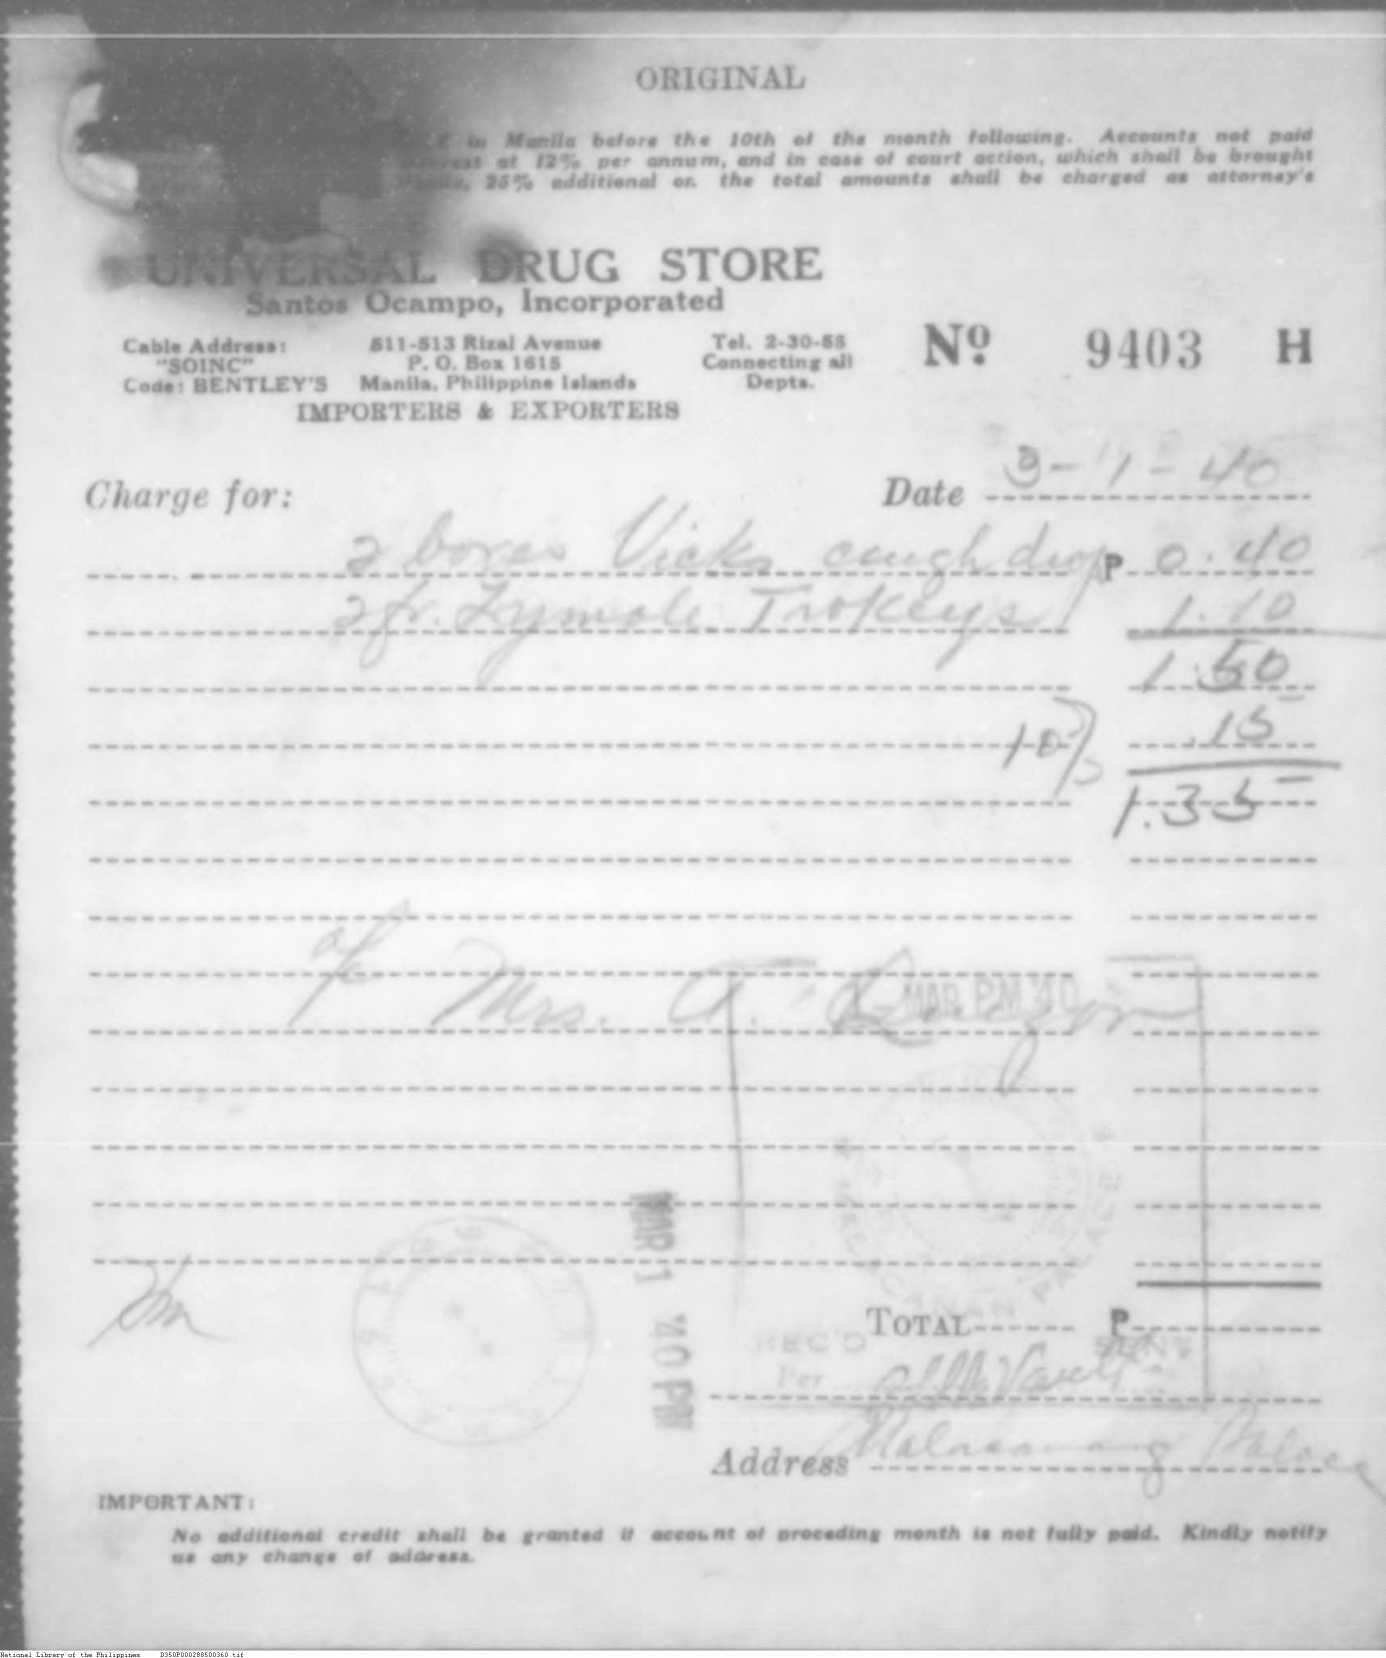 ORIGINAL
in Manila before the 10th of the month following. Accounts not paid
at 12% per annum, and in case of court action, which shall be brought
25% additional on the total amounts shall be charged as attorney's
UNIVERSAL DRUG STORE
Santos Ocampo, Incorporated
Cable Address: 511-513 Rizal Avenue Tel. 2-30-55
"SOINC" P. O. Box 1615 Connecting all
Code: BENTLEY'S Manila, Philippine Islands Depts.
Nº 9403 H
IMPORTERS & EXPORTERS
Charge for: Date 3-1-40
2 boxes Vicks cough drop P 0.40
2 fr. Zymole Trokeys 1.10
1.50
10% .15
1.35
a/c Mrs. A. Quezon
MAR PM '40
MALACAÑAN PALACE
MAR 1 '40 PM
TOTAL P
REC'D
Per
Address Malacanang Palace
IMPORTANT:
No additional credit shall be granted if account of preceding month is not fully paid. Kindly notify
us any change of address.
National Library of the Philippines D350P000288500360.tif